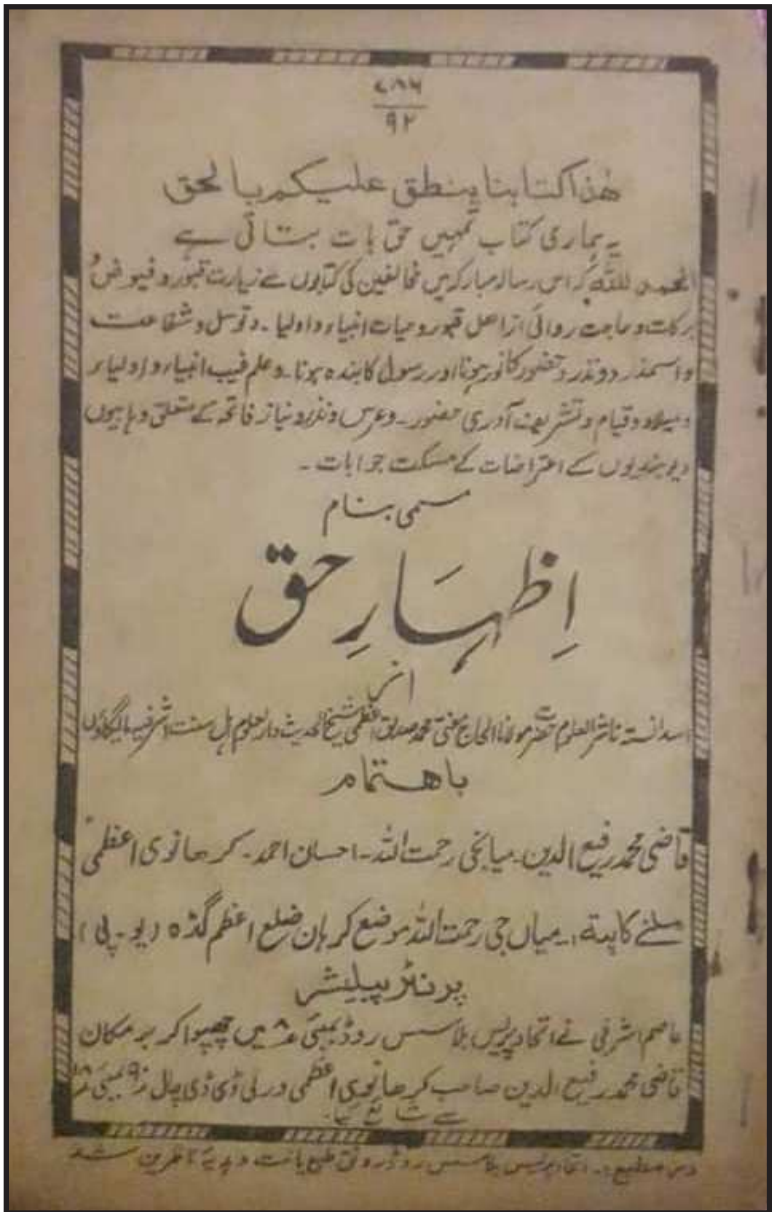 ۷۸۶
۹۲
ھٰذا کتابنا ینطق علیکم بالحق
یہ ہماری کتاب تمہیں حق بات بتاتی ہے
الحمد للہ کہ اس رسالہ مبارکہ میں مخالفین کی کتابوں سے زیارت قبور و فیوض
برکات و حاجت روائی از اھل قبور و حیات انبیاء و اولیا ۔ و توسل و شفاعت
و نذر و حضور کا نور ہونا اور رسول کا بندہ ہونا ۔ و علم غیب انبیاء و اولیاء
و میلاد و قیام و تشریف آوری حضور ۔ و عرس و نذر و نیاز فاتحہ کے متعلق وہابیوں
دیوبندیوں کے اعتراضات کے مسکت جوابات ۔
مسمی بنام
اِظہَارِ حق
از
ناشر العلوم حضرت مولانا الحاج مفتی محمد صدیق اعظمی شیخ الحدیث دار العلوم اہل سنت اشرفیہ مالیگاؤں
باھتمام
قاضی محمد رفیع الدین ۔ میانجی رحمت اللہ ۔ احسان احمد ۔ کرھانوی اعظمی
ملنے کا پتہ :۔ میاں جی رحمت اللہ موضع کرہاں ضلع اعظم گڈہ (یو ۔ پی)
پرنٹر پبلیشر
عاصم اشرفی نے اتحاد پریس بلاسس روڈ بمبئی ۸ میں چھپوا کر بر مکان
قاضی محمد رفیع الدین صاحب کرھانوی اعظمی ورلی ڈی ڈی چال ۹۰ بمبئی ۱۸
سے شائع کیا ۔
در مطبع :۔ اتحاد پریس بلاسس روڈ رونق طبع یافت و ہدیۂ ناظرین شد